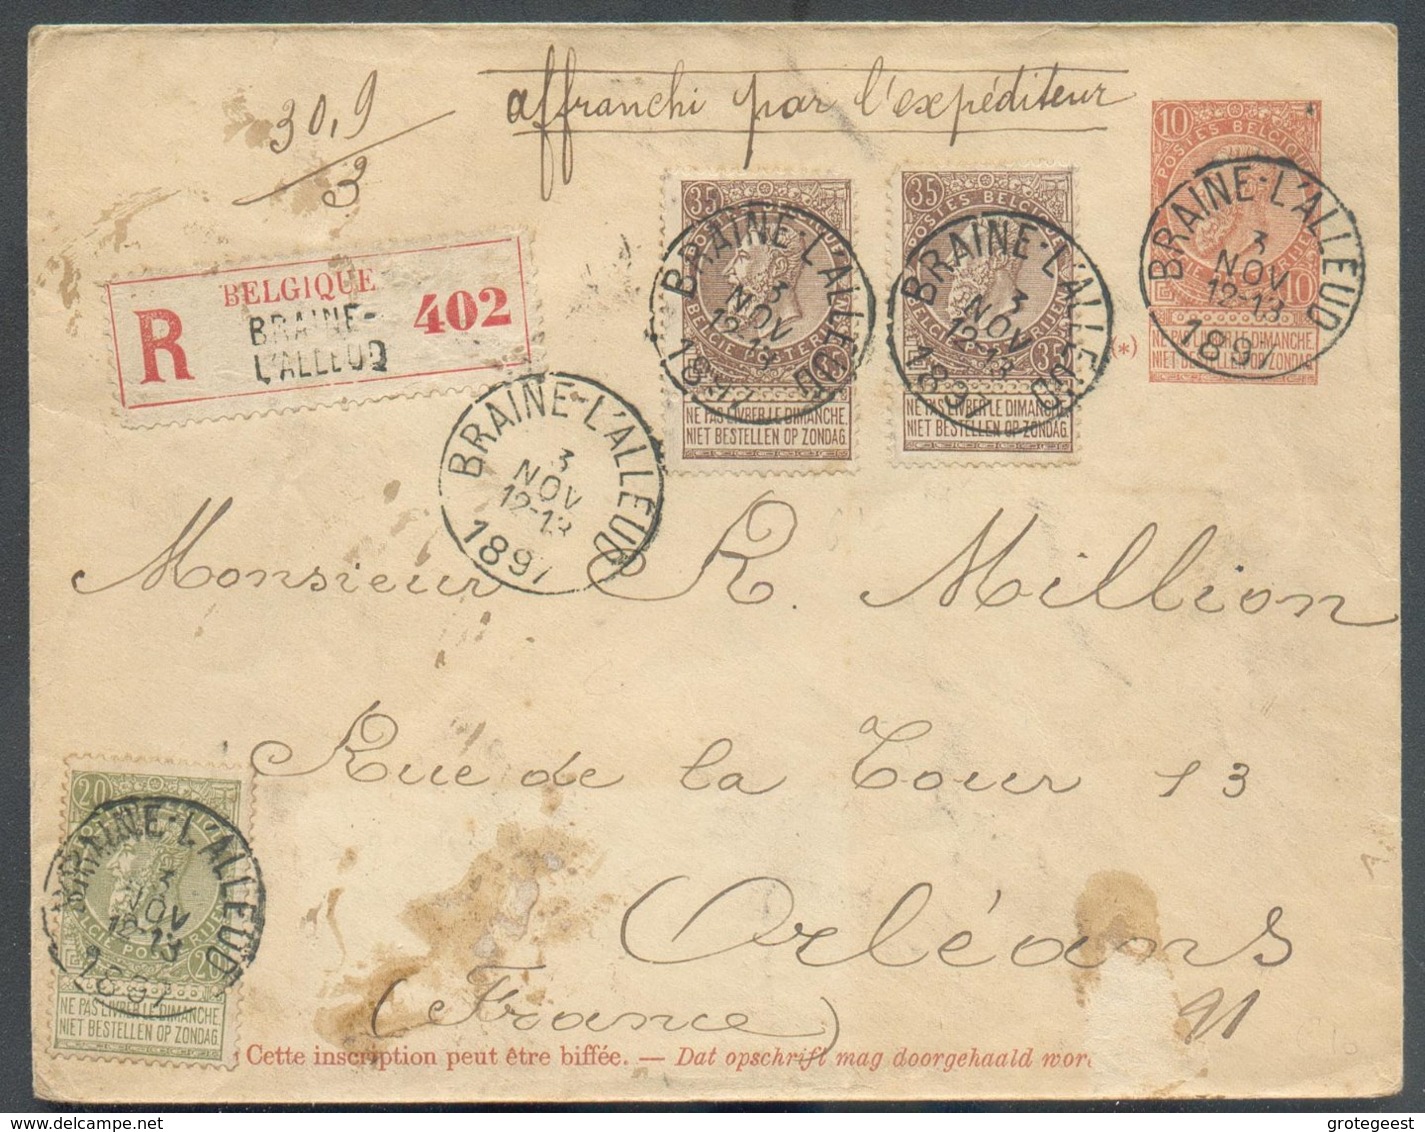 30,9
3
affranchi par l'expéditeur
10
POSTES BELGIQUE
10
NE PAS LIVRER LE DIMANCHE.
NIET BESTELLEN OP ZONDAG.
BRAINE-L'ALLEUD
3
NOV
12-13
1897
35
POSTES BELGIQUE
BELGIE POSTERIJEN
35
NE PAS LIVRER LE DIMANCHE.
NIET BESTELLEN OP ZONDAG.
BRAINE-L'ALLEUD
3
NOV
12-13
1897
35
POSTES BELGIQUE
BELGIE POSTERIJEN
35
NE PAS LIVRER LE DIMANCHE.
NIET BESTELLEN OP ZONDAG.
BRAINE-L'ALLEUD
3
NOV
12-13
1897
(*)
R
BELGIQUE
BRAINE-
L'ALLEUD
402
BRAINE-L'ALLEUD
3
NOV
12-13
1897
Monsieur R. Million
Rue de la Tour 13
Orléans
(France)
91
20
BELGIE POSTERIJEN
20
NE PAS LIVRER LE DIMANCHE.
NIET BESTELLEN OP ZONDAG.
BRAINE-L'ALLEUD
3
NOV
12-13
1897
Cette inscription peut être biffée. — Dat opschrift mag doorgehaald wor
delcampe.net
grotegeest